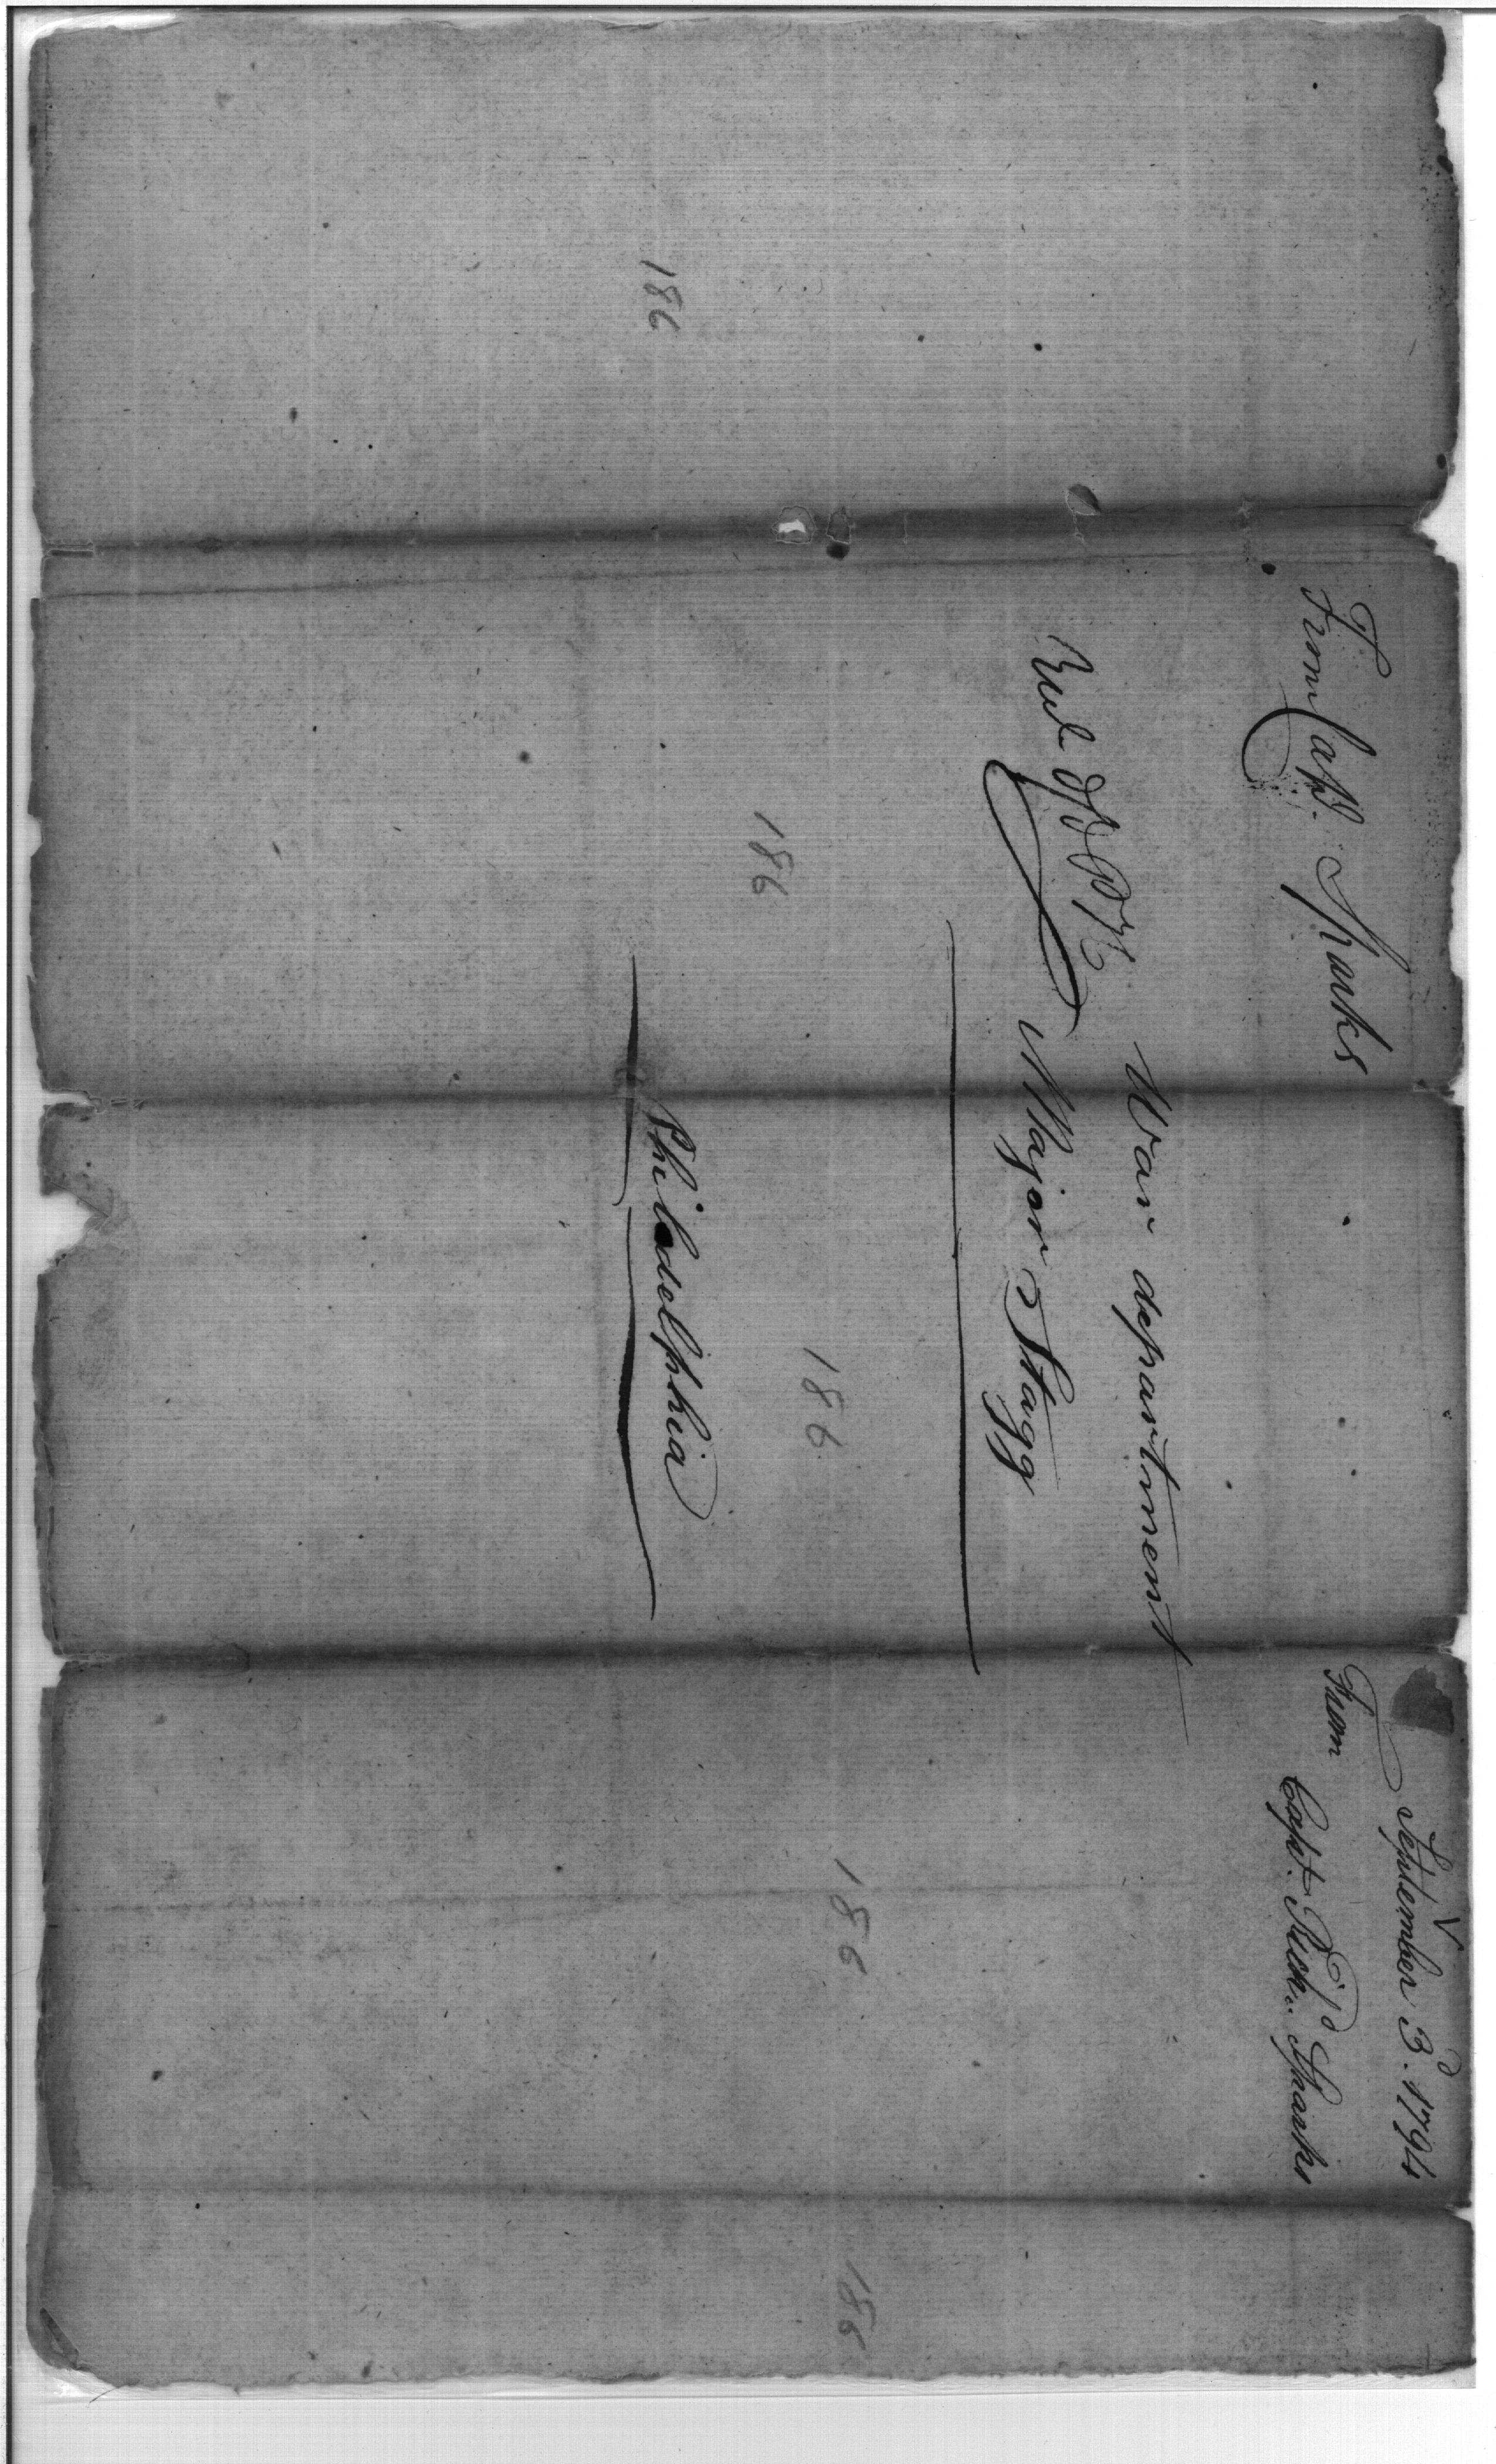 From Capt. Sparks
War department
Major Stagg
Philadelphia
September 3d. 1794
From
Capt. Richd. Sparks
186
186
186
186
186